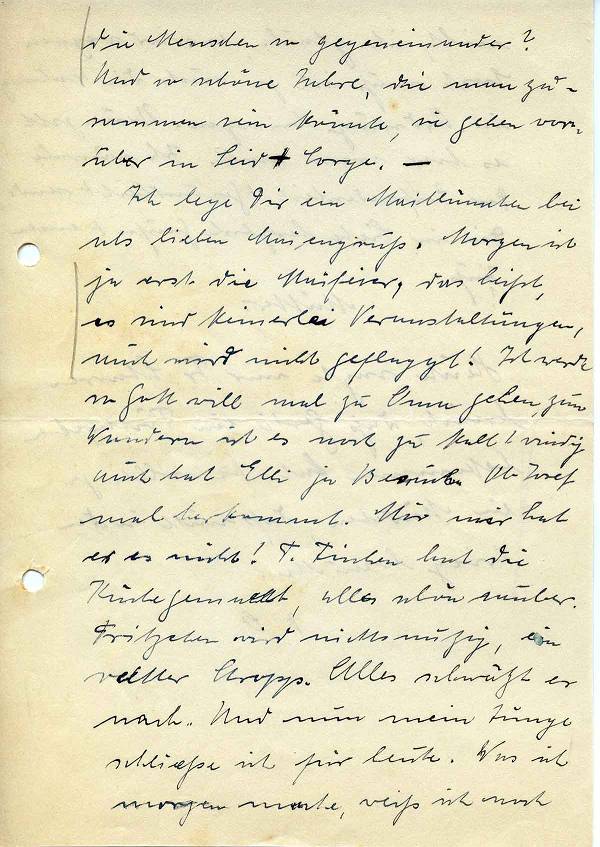 die Menschen so gegeneinander?
Und so schöne Jahre, die man zu-
sammen sein könnte, sie gehen vor-
über in Leid + Sorge. —
Ich lege Dir ein Maiblümchen bei
als lieben Maiengruß. Morgen ist
ja erst die Maifeier, das heißt,
es sind keinerlei Veranstaltungen,
auch wird nicht geflaggt! Ich werde
so Gott will mal zu Anna gehen, zum
Wandern ist es noch zu kalt! windig
auch hat Elli ja Besuch. Ob Josef
mal herkommt. Mir
er es nicht! T. Tinchen hat die
Küche gemacht, alles schön sauber.
Fritzchen wird nichtsnutzig, ein
netter Stropp. Alles schwätzt er
nach. Und nun mein Junge
schließe ich für heute. Was ich
morgen mache, weiß ich noch